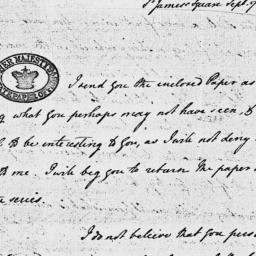 St James's Square Sept. 9
HER MAJESTY'S
STATE PAPER OF
I send you the inclosed Paper as
what you perhaps may not have seen, &
be interesting to you, as I will not deny
to me. I will beg you to return the paper
I do not beleive that you